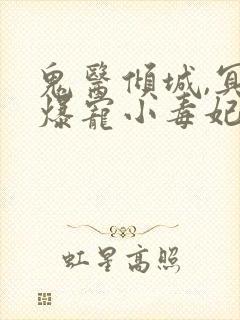 鬼醫傾城,冥
爆寵小毒妃
虹星高照